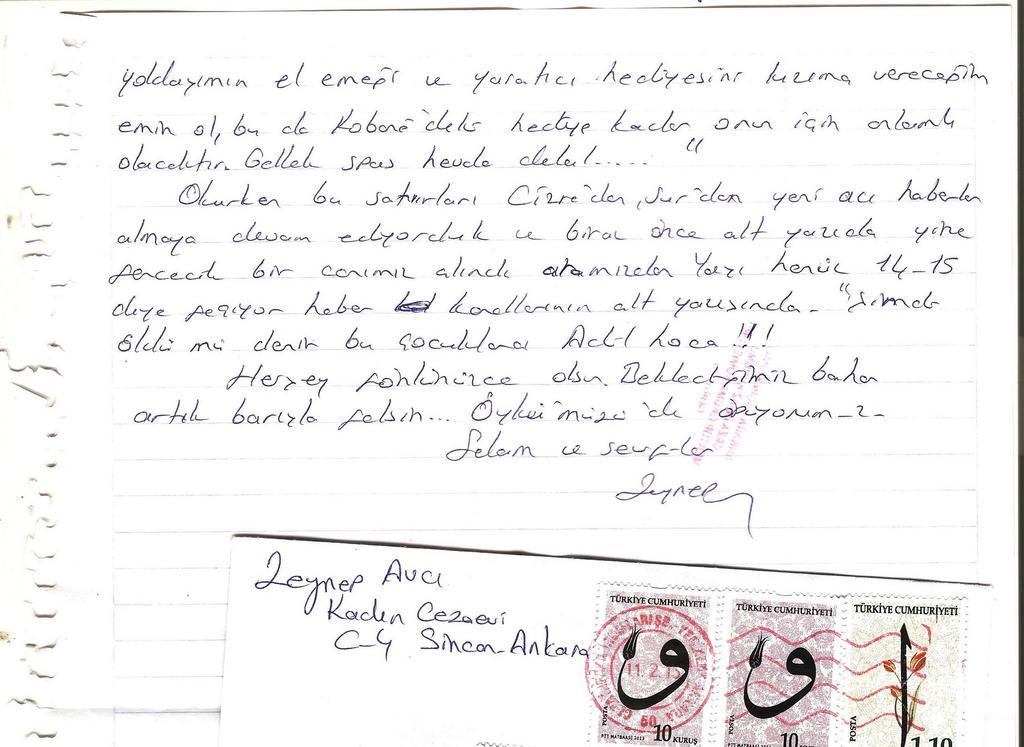 yoldaşımın el emeği ve yaratıcı hediyesini kızıma vereceğim
emin ol, bu da Kobanê'deki hediye kadar onun için anlamlı
olacaktır. Gellek spas hevala delal....."
Okurken bu satırları Cizre'den, Sur'dan yeni acı haberler
almaya devam ediyorduk ve biraz önce alt yazıda yine
gencecik bir canımız alındı aramızdan. Yaşı henüz 14-15
diye geçiyor haber kanallarının alt yazısında. "şimdi
öldü mü denir bu çocuklara Adil hoca!!!
Herşey gönlünüzce olsun. Beklediğimiz bahar
artık barışla gelsin... Öykü'müzü de öpüyorum-z-
Selam ve sevgiler
Zeynep
Zeynep Avcı
Kadın Cezaevi
C-4 Sincan-Ankara
TÜRKİYE CUMHURİYETİ TÜRKİYE CUMHURİYETİ TÜRKİYE CUMHURİYETİ
11.2.15
60
POSTA POSTA POSTA
10 KURUŞ 10 KURUŞ 1.10
PTT MATBAASI 2013 PTT MATBAASI 2013